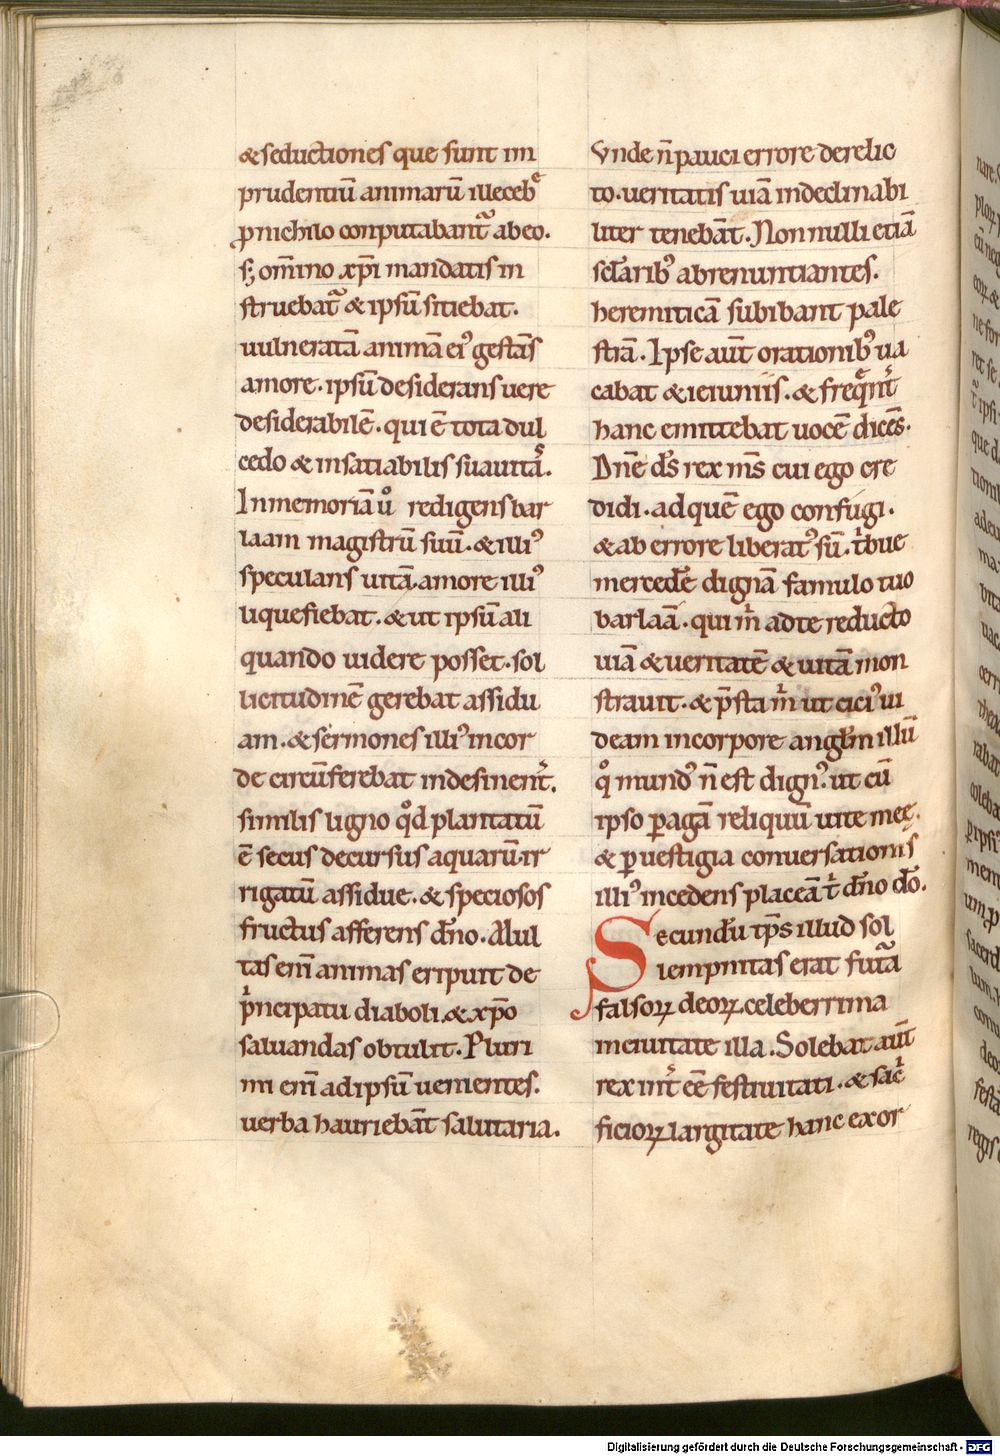 &seductiones que sunt im
prudentiū animarū illecebᵉ
ꝓnichilo conputabant᷑ abeo.
sꝫ om̄ino xp̄i mandatis in
struebat᷑ & ipsū sitiebat.
uulneratā animā eiꝰ gestās
amore. ipsū desiderans uere
desiderabilē. qui ē tota dul
cedo & insatiabilis suauitas.
Inmemoriā uͦ redigens bar
laam magistrū suū. & illiꝰ
speculans uitā. amore illiꝰ
liquefiebat. & ut ipsū ali
quando uidere posset. sol
licitudinē gerebat assidu
am. & sermones illiꝰ incor
de circūferebat indesinent̉.
similis ligno qͦd plantatū
ē secus decursus aquarū. ir
rigatū assidue. & speciosos
fructus afferens dn̄o. Mul
tas eni̅ animas eripuit de
pͥncipatu diaboli. & xp̄o
saluandas obtulit. Pluri
mi eni̅ adipsū uenientes.
uerba hauriebāt salutaria.
Vnde n̄ pauci errore derelic
to. ueritatis uiā indeclinabi
liter tenebāt. Nonnulli etiā
sclaribꝰ abrenuntiantes.
heremiticā subibant pale
strā. Ipse aūt orationibꝰ ua
cabat & ieiuniis. & freq̄nt̉
hanc emittebat uocē dicēs.
Dn̄e ds̄ rex ms̄ cui ego cre
didi. ad quē ego confugi.
& ab errore liberatꝰ sū. tͥbue
mercedē dignā famulo tuo
barlaā. qui mͥ ad te reducto
uiā & ueritatē & uitā mon
strauit. & p̄sta mͥ ut ciciꝰ ui
deam in corpore angłm illū
qͦ mundꝰ n̄ est dignꝰ. ut cū
ipso ꝑagā reliquū uite meę.
& ꝑ uestigia conuersationis
illiꝰ incedens placeā tͥ dn̄o do̅.
Secundū ip̄s illud sol
lempnitas erat futa᷑
falsoꝝ deoꝝ celeberrima
in ciuitate illa. Solebat aūt
rex int̉ ēe festiuitati. & sacͥ
ficioꝝ largitate hanc exor
Digitalisierung gefördert durch die Deutsche Forschungsgemeinschaft - DFG